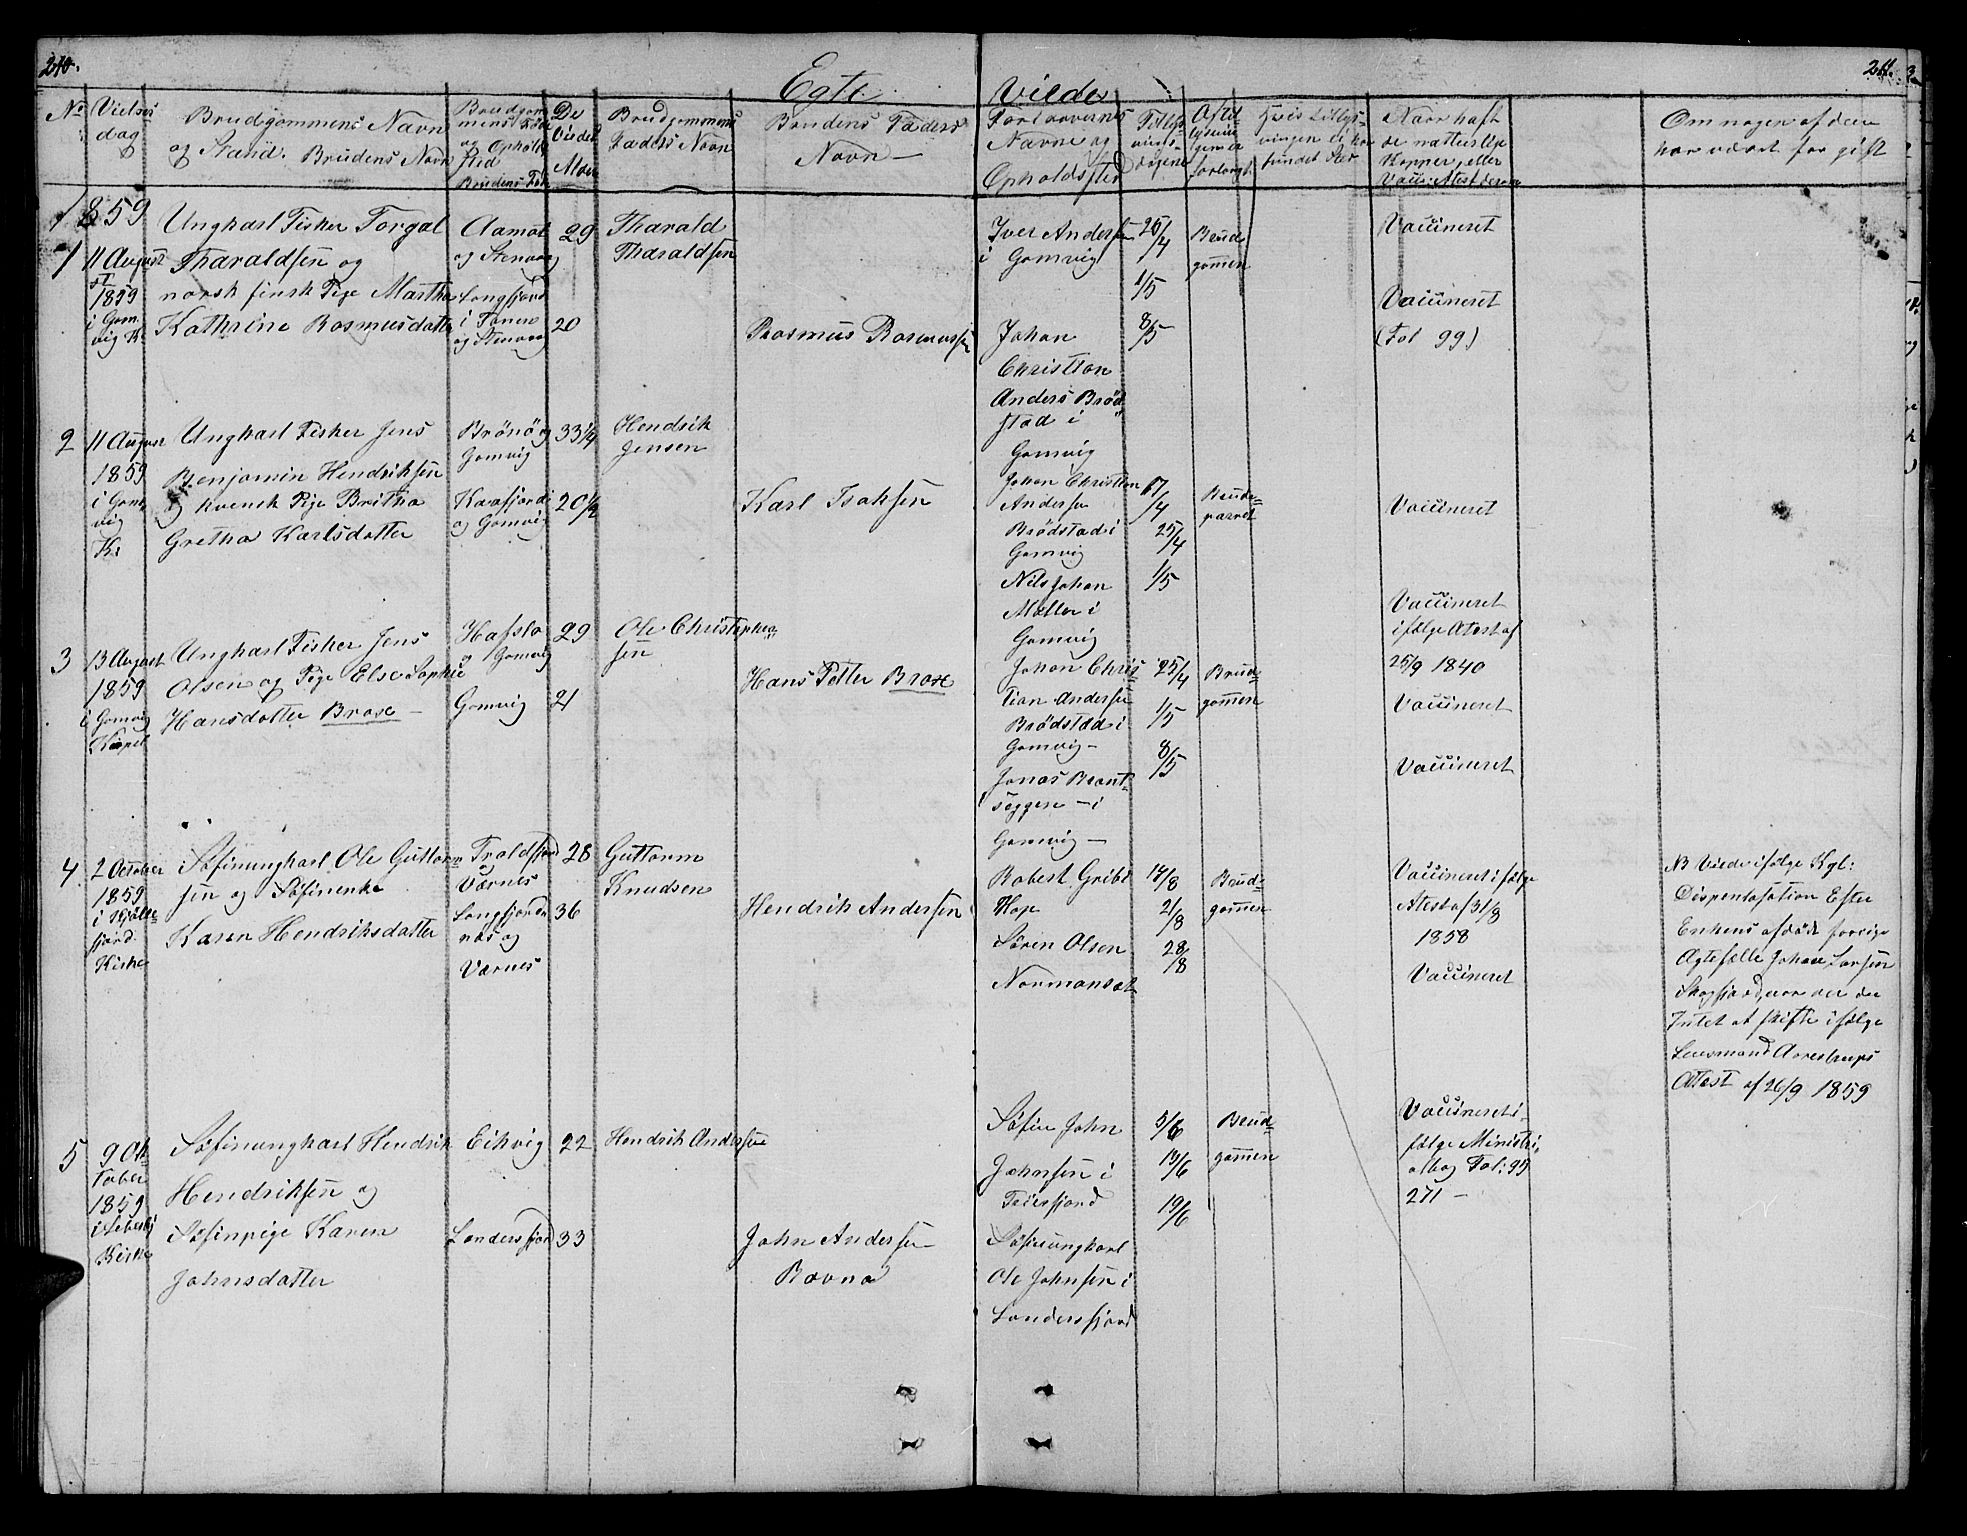 210.
211.
Egte
Viede
No
Vielses
dag
Brudgommens Navn
og Stand. Brudens Navn
Brudgom
mens Føde
og Opholds
sted
Brudens Føde
De
Viedes
Alder
Brudgommens
Faders Navn
Brudens Faders
Navn
Forlovernes
Navne og
Opholdssted
Tillys
nings-
dagene
Naar haft
de naturlige
Kopper, eller
Vacc: Atest derom
Om nogen af dem
har været før gift
1859
1
11 August
1859
i Gam
vig K.
Ungkarl Fisker Torgal
Tharaldsen og
norsk finsk Pige Martha
Kathrine Rasmusdatter
Aamot
og Stenvaag
Langfjord
i Tanen
og Stenvaag
29
20
Tharald
Tharaldsen
Rasmus Rasmussen
Iver Andersen
i Gamvig
Johan
Christian
Anders Brød
stad i
Gamvig
25/4
1/5
8/5
Brud
gommen
Vaccineret
Vaccineret
(Fol 99)
2
11 August
1859
i Gam
vig
K:
Ungkarl Fisker Jens
Benjamin Hendriksen
og kvensk Pige Britha
Gretha Karlsdatter
Brönö og
Gamvig
Kaafjord i
og Gamvig
33 1/4
20 1/2
Hendrik
Jensen
Karl Isaksen
Johan Christian
Andersen
Brödstad i
Gamvig
Nils Johan
Møller i
Gamvig
17/4
25/4
1/5
Brude-
parret
Vaccineret
Vaccineret
ifølge Atest af
25/9 1840
3
13 August
1859
i Gamvig
Kapel
Ungkarl Fisker Jens
Olsen og Pige Else Sophie
Hansdatter Brox
Hafslo
og Gamvig
Gamvig
29
21
Ole Christopher
sen
Hans Petter Brox
Johan Chris
tian Andersen
Brödstad i
Gamvig
Jonas Brant
seggen - i
Gamvig
25/4
1/5
8/5
Brud-
gommen
Vaccineret
Vaccineret
4.
2 October
1859
i Kjölle
fjord
Kirke
Søfinungkarl Ole Guttorm
sen og Søfinenke
Karen Hendriksdatter
Troldfjord
og
Værnes
Langfjord
næs og
Værnes
28
36
Guttorm
Knudsen
Hendrik Andersen
Robert Gribi
Hop
Sören Olsen
Normanset
14/8
21/8
28/8
Brud-
gommen
Vaccineret ifølge
Atest af 31/8
1858
Vaccineret
NB Viede ifølge Kgl:
Dispensasation Efter
Enkens afdøde forrige
Ægtefælle Johan Larsen
Skogfjord, var der
Intet at skifte ifølge
Lensmand Aarestrups
Attest af 26/9 1859
5
9 Ok
tober
1859
i Lebesby
Kirke
Søfinungkarl Hendrik
Hendriksen og
Søfinpige Karen
Johnsdatter
Eikvig
Landersfjord
22
33
Hendrik Andersen
John Andersen
Ravna
Søfin John
Johnsen i
Søfinungkarl
Ole Johnsen i
Landersfjord
5/6
13/6
19/6
Brud-
gommen
Vaccineret i-
følge Ministri
albog Fol: 95
271